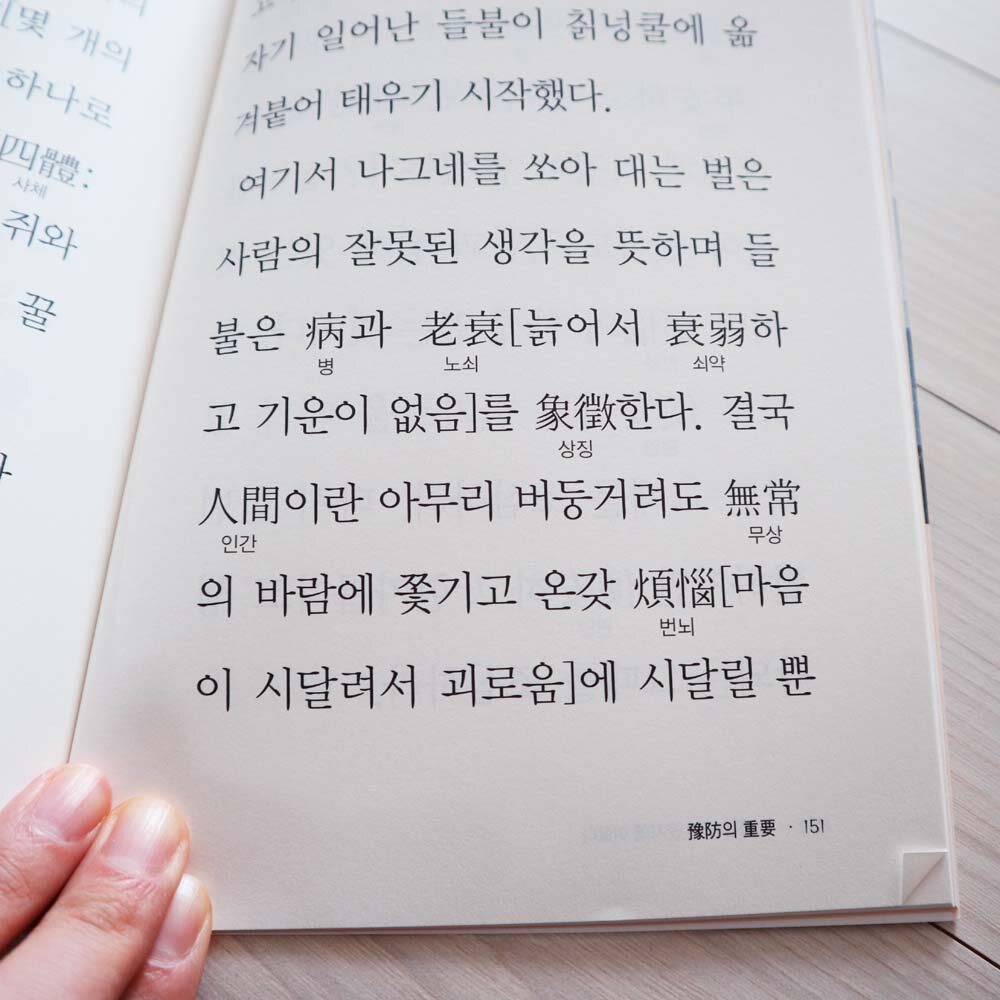 몇 개의
하나로
四體:
사체
쥐와
꿀
자기 일어난 들불이 칡넝쿨에 옮
겨붙어 태우기 시작했다.
여기서 나그네를 쏘아 대는 벌은
사람의 잘못된 생각을 뜻하며 들
불은 病과 老衰[늙어서 衰弱하
병 노쇠 쇠약
고 기운이 없음]를 象徵한다. 결국
상징
人間이란 아무리 버둥거려도 無常
인간 무상
의 바람에 쫓기고 온갖 煩惱[마음
번뇌
이 시달려서 괴로움]에 시달릴 뿐
豫防의 重要 · 151